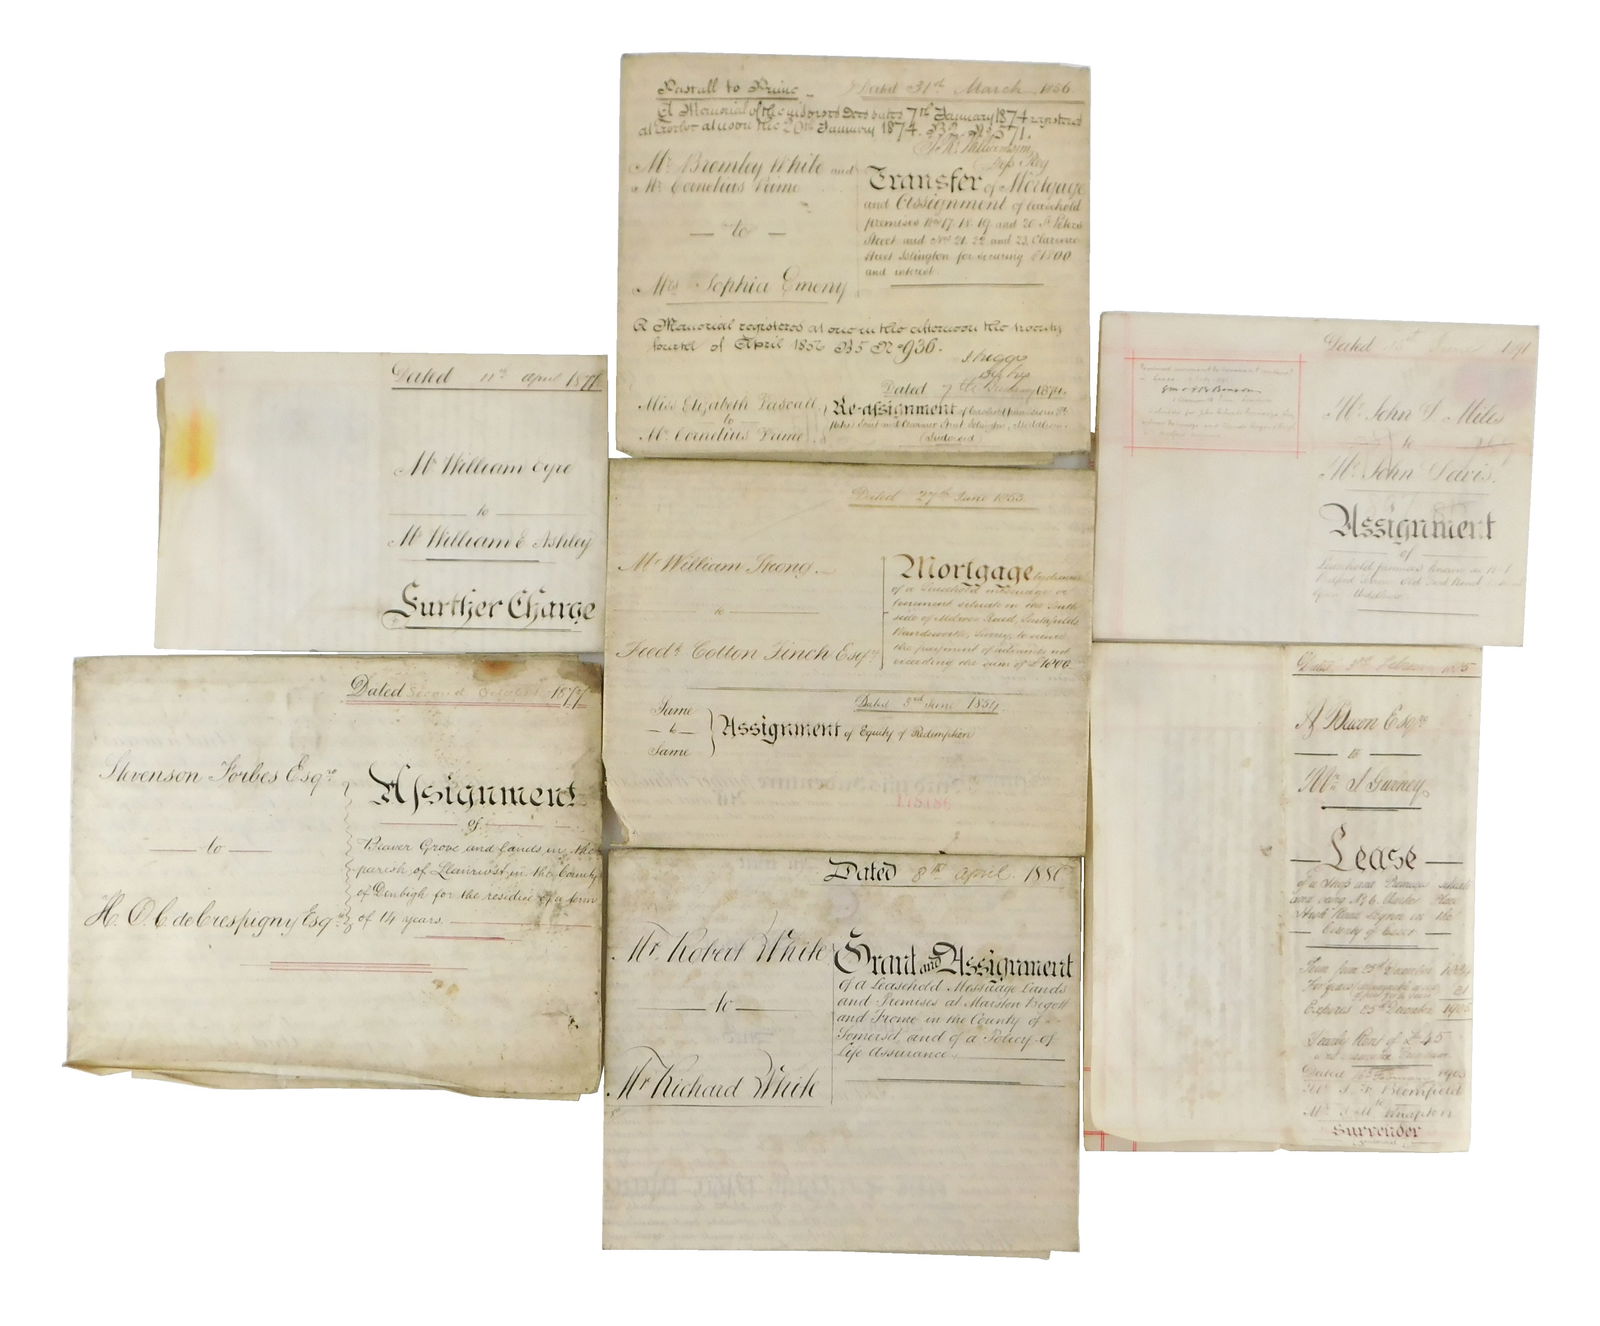 Dated 31st March 1856
A Memorial of the within Deed dated 7th January 1874 registered
at 20th January 1874. B 2 No 571.
Mr. Bromley White and
Mr. Cornelius Prime
— to —
Mrs. Sophia Emeny
Transfer of Mortgage
and Assignment of leasehold
premises Nos 17. 18. 19. and 20 St. Peters
Street and Nos 21. 22 and 23. Clarence
Street Islington for securing £1800
and interest.
A Memorial registered at one in the afternoon the twenty
fourth of April 1856 B 5 No 936.
Dated 7th 1874.
Miss Elizabeth
to
Mr. Cornelius Prime
Re-assignment of Leasehold premises
Dated 11th April 1877
Mr William Eyre
to
Mr William E Ashley
Further Charge
Dated June 1891
Mr. John S Miles
to
Mr. John Davis.
Assignment
of
Dated 27th June 1853.
Mr William Strong.
to
Fredk. Cotton Finch Esqre
Mortgage
of a Leasehold messuage or
tenement situate on the South
side of Road,
Wandsworth, Surrey, to secure
the payment of advances not
exceeding the sum of £1000
Dated 3rd June 1854.
Same
— to —
Same
Assignment of Equity of Redemption
Dated Second October 1877
Stevenson Forbes Esqre
— to —
H. O. C. de Crespigny Esqre
Assignment
of
Beaver Grove and lands in the
parish of Llanrwst, in the County
of Denbigh for the residue of a term
of 14 years.
Dated 3rd February
A Bacon Esqre
to
Mr. S Gurney
— Lease —
of a Shop and Premises situate
and being No 6.
High Road in the
— County of Essex —
Term from 25th December 1884
For years 21
Expires 25th December 1905
Yearly Rent of £45
Dated 1903
Blomfield
to
Surrender
Dated 8th April. 188
Mr. Robert White
— to —
Mr Richard White
Grant and Assignment
of a Leasehold Messuage Lands
and Premises at Marston Bigott
and Frome in the County of
Somerset, and of a Policy of
Life Assurance.